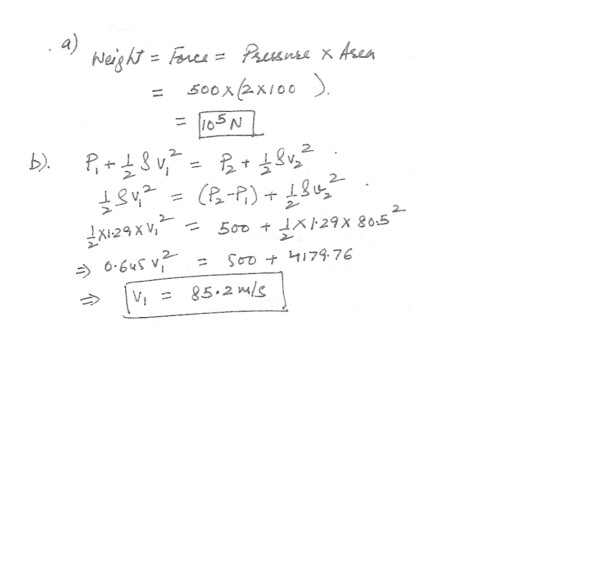 . a) Weight = Force = Pressure x Area
= 500 x (2 x 100 ).
= 10⁵ N
b). P₁ + 1/2 ρ v₁² = P₂ + 1/2 ρ v₂² .
1/2 ρ v₁² = (P₂ - P₁) + 1/2 ρ v₂² .
1/2 x 1.29 x V₁² = 500 + 1/2 x 1.29 x 80.5²
⇒ 0.645 v₁² = 500 + 4179.76
⇒ V₁ = 85.2 m/s